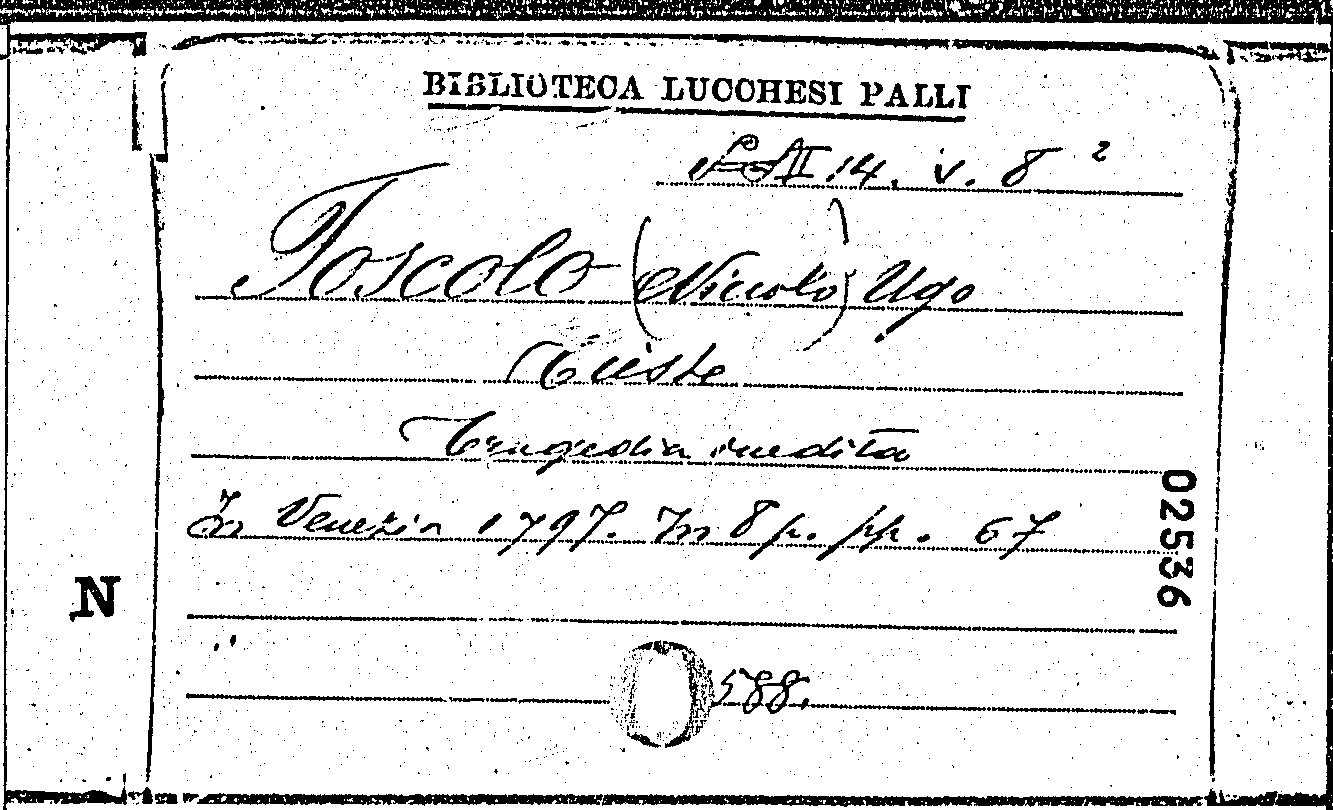 BIBLIOTECA LUCCHESI PALLI
II 14. v. 8 2
Foscolo (Niccolò) Ugo
Tieste
Tragedia inedita
In Venezia 1797. In 8 p. pp. 67
02536
N
588.